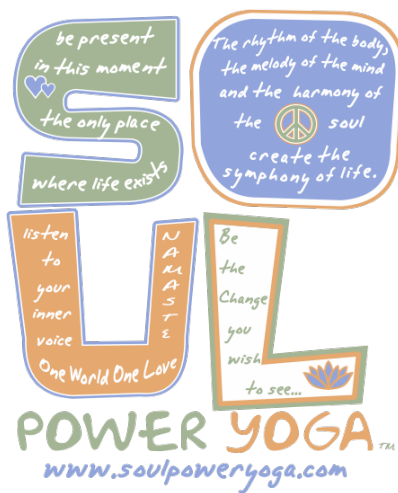 SOUL
be present
in this moment
the only place
where life exists
The rhythm of the body,
the melody of the mind
and the harmony of
the soul
create the
symphony of life.
listen
to
your
inner
voice
NAMASTE
One World One Love
Be
the
Change
you
wish
to see...
POWER YOGA™
www.soulpoweryoga.com